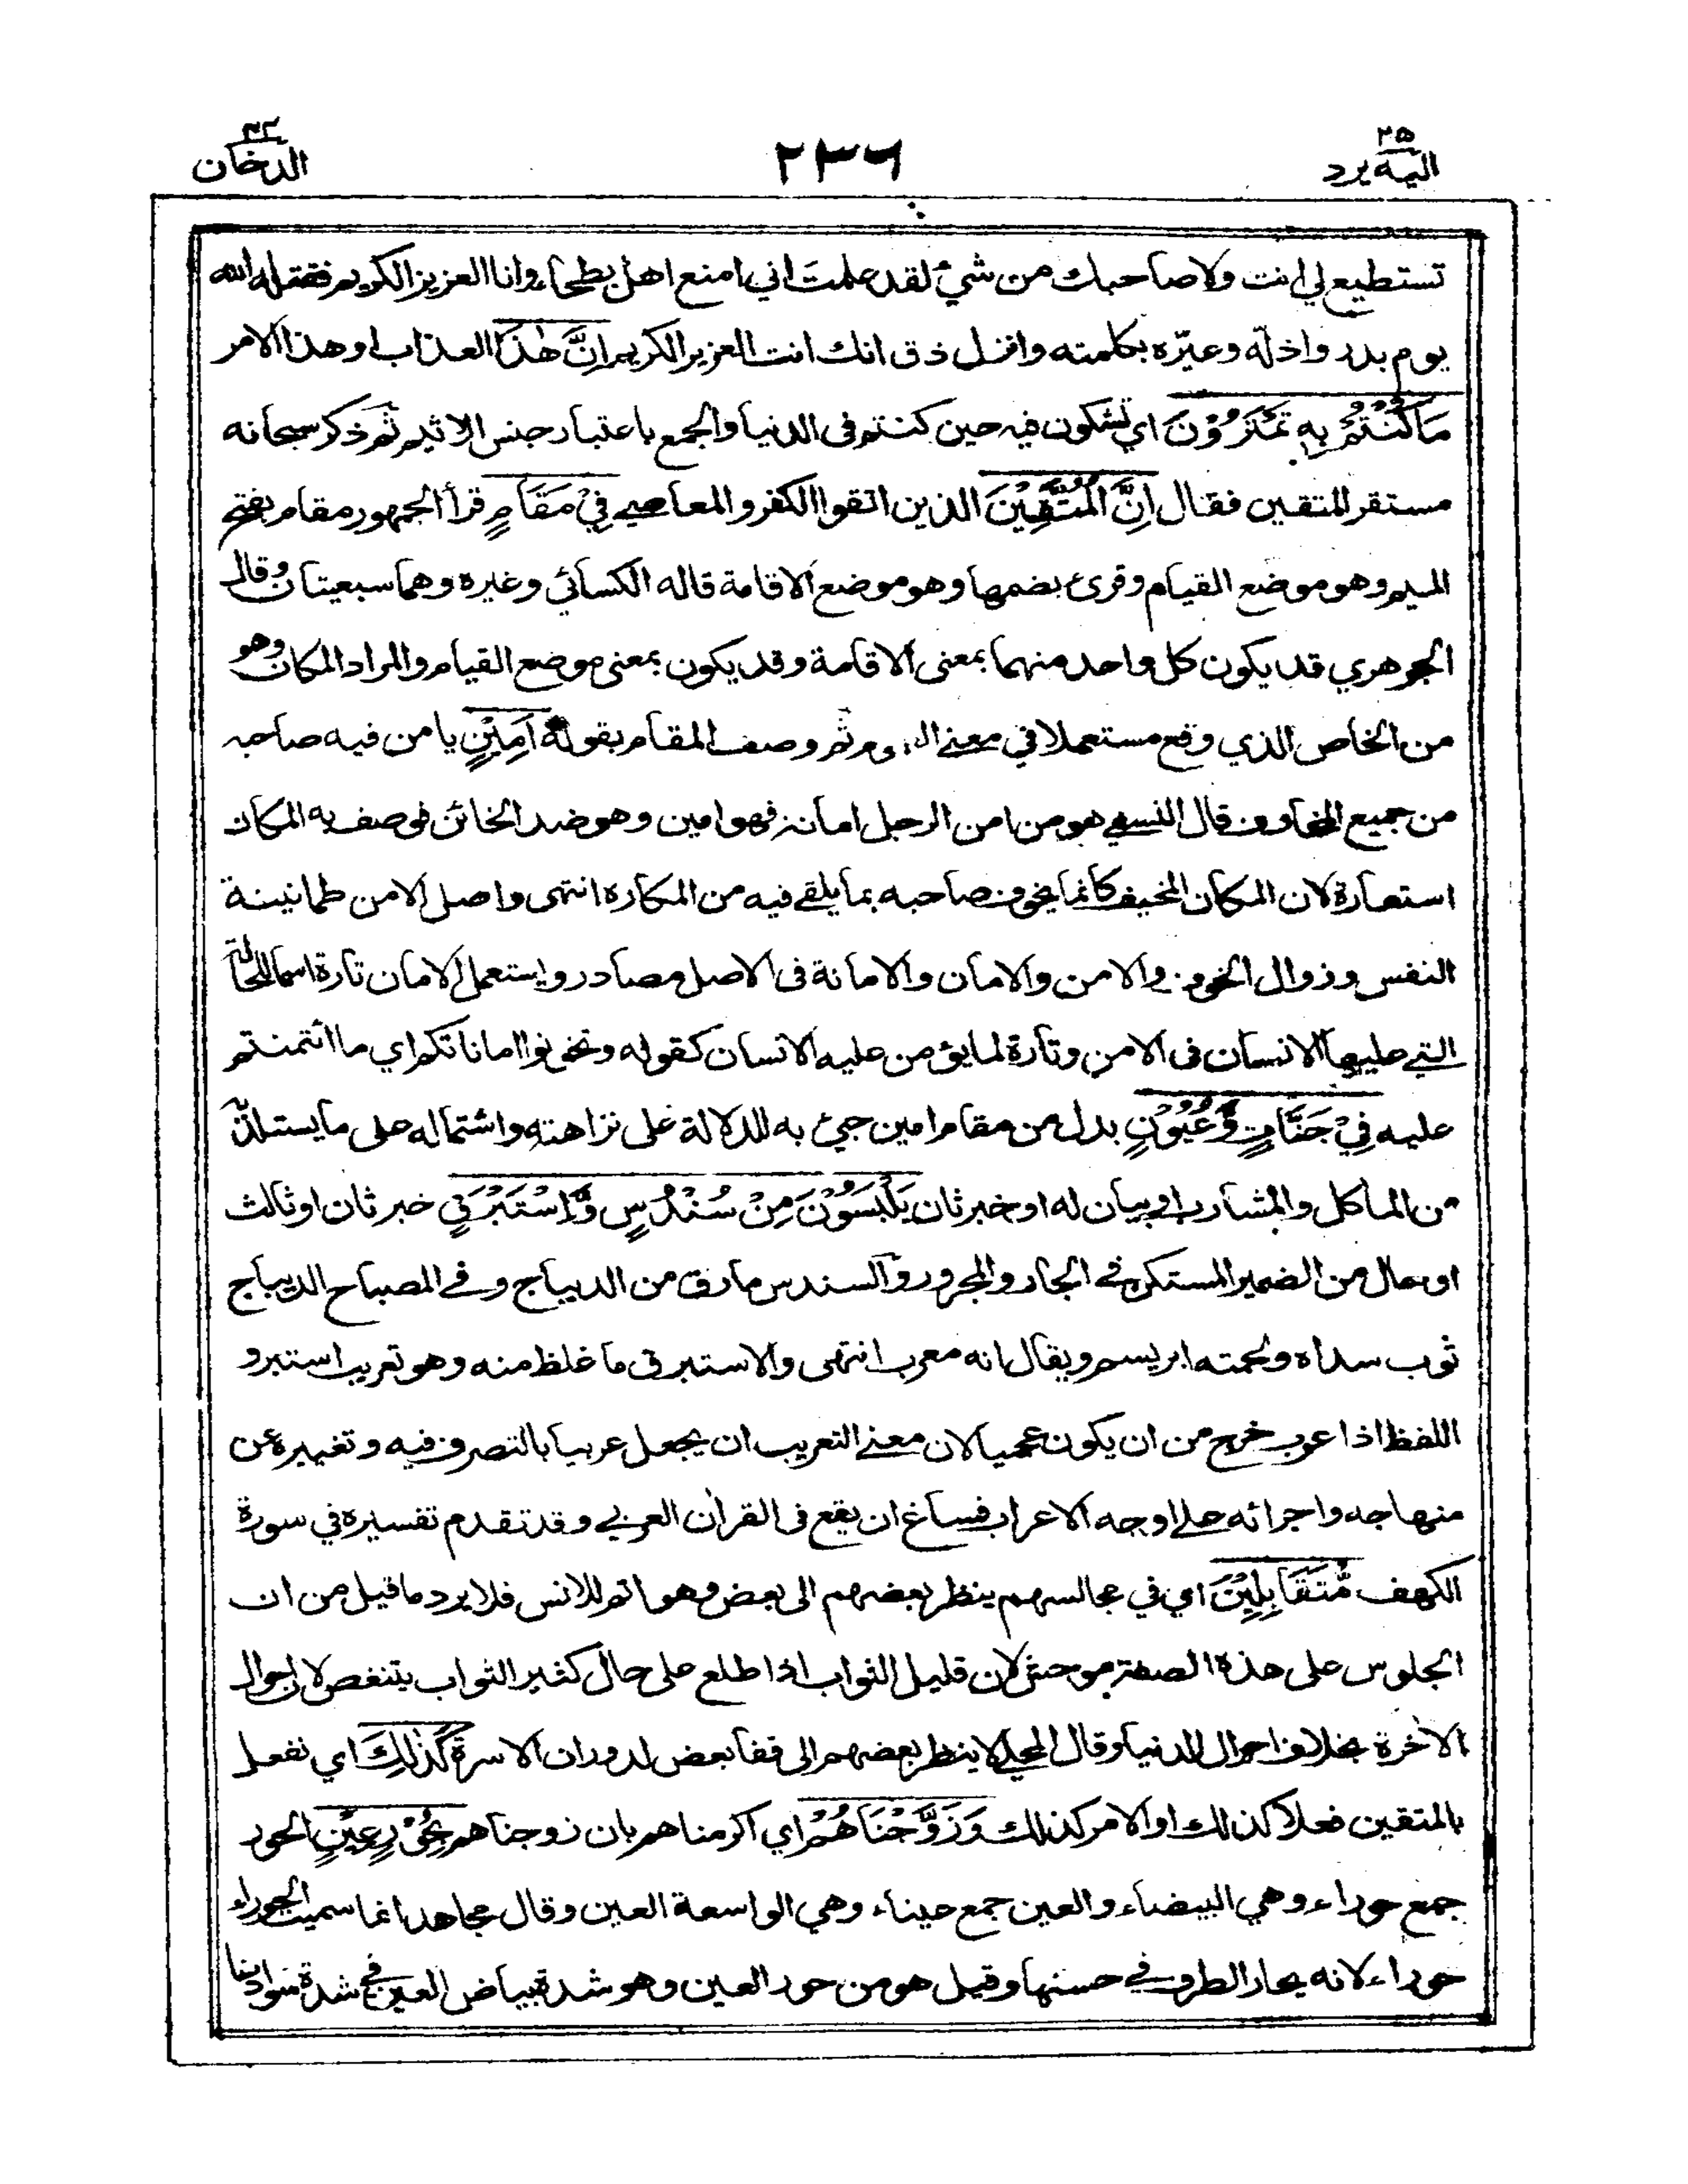 ٢٥ اليه يرد
٢٣٦
٤٤ الدخان
تستطيع لي انت ولا صاحبك من شيء لقد علمتَ اني امنع اهل بطحاء وانا العزيز الكريم فقتله الله
يوم بدر واذله وعيّره بكلمته وانزل ذق انك انت العزيز الكريم اِنَّ هٰذَا العذاب او هذا الامر
مَا كُنْتُمْ بِهٖ تَمْتَرُوْنَ اي تشكون فيه حين كنتم في الدنيا والجمع باعتبار جنس الاثيم ثم ذكر سبحانه
مستقر المتقين فقال اِنَّ الْمُتَّقِيْنَ الذين اتقوا الكفر والمعاصي فِيْ مَقَامٍ قرأ الجمهور مقام بفتح
الميم وهو موضع القيام وقرئ بضمها وهو موضع الاقامة قاله الكسائي وغيره وهما سبعيتان وقال
الجوهري قد يكون كل واحد منهما بمعنى الاقامة وقد يكون بمعنى موضع القيام والمراد المكان وهو
من الخاص الذي وقع مستعملا في معنى ثم وصف المقام بقوله اَمِيْنٍ يا من فيه صاحبه
من جميع المخاوف قال النسفي هو من امن الرجل امانة فهو امين وهو ضد الخائن فوصف به المكان
استعارة لان المكان المخيف كانما يخوف صاحبه بما يلقى فيه من المكاره انتهى واصل الامن طمانينة
النفس وزوال الخوف والامن والامان والامانة في الاصل مصادر ويستعمل الامان تارة اسما للحالة
التي عليها الانسان في الامن وتارة لما يؤمن عليه الانسان كقوله وتخونوا اماناتكم اي ما ائتمنتم
عليه فِيْ جَنَّاتٍ وَّعُيُوْنٍ بدل من مقام امين جيء به للدلالة على نزاهته واشتماله على ما يستلذّ
من الماكل والمشارب او بيان له او خبر ثان يَلْبَسُوْنَ مِنْ سُنْدُسٍ وَّاِسْتَبْرَقٍ خبر ثان او ثالث
او حال من الضمير المستكن في الجار والمجرور والسندس ما رق من الديباج وفي المصباح الديباج
ثوب سداه ولحمته ابريسم ويقال انه معرب انتهى والاستبرق ما غلظ منه وهو تعريب استبر و
اللفظ اذا عرب خرج من ان يكون عجميا لان معنى التعريب ان يجعل عربيا بالتصرف فيه وتغييره عن
منهاجه واجرائه على اوجه الاعراب فساغ ان يقع في القران العربي وقد تقدم تفسيره في سورة
الكهف مُّتَقَابِلِيْنَ اي في مجالسهم ينظر بعضهم الى بعض وهو اتم للانس فلا يرد ما قيل من ان
الجلوس على هذه الصفة موحش لان قليل الثواب اذا طلع على حال كثير الثواب يتنغص لان احوال
الاخرة بخلاف احوال الدنيا وقال المحلي لا ينظر بعضهم الى قفا بعض لدوران الاسرة كَذٰلِكَ اي نفعل
بالمتقين فعلا كذلك او الامر كذلك وَزَوَّجْنَاهُمْ اي اكرمناهم بان زوجناهم بِحُوْرٍ عِيْنٍ الحور
جمع حوراء وهي البيضاء والعين جمع عيناء وهي الواسعة العين وقال مجاهد انما سميت الحوراء
حوراء لانه يحار الطرف في حسنها وقيل هو من حور العين وهو شدة بياض العين في شدة سوادها